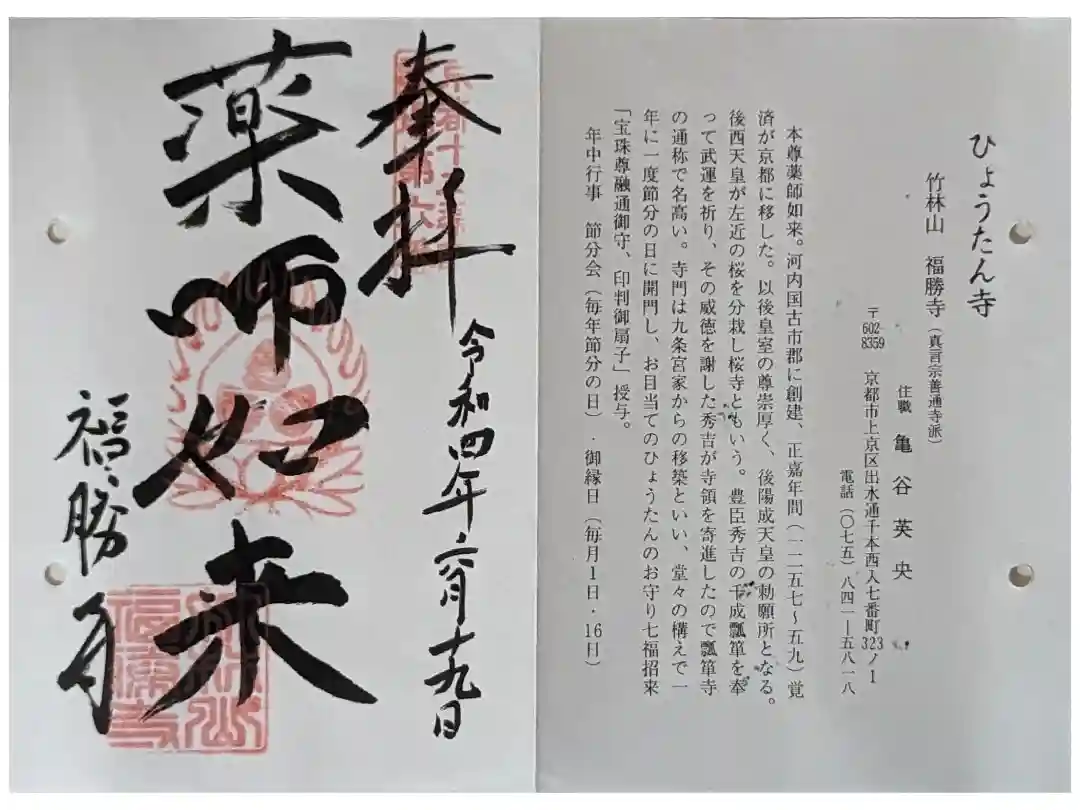 ひょうたん寺
竹林山　福勝寺（真言宗善通寺派）
住職　亀谷英央
〒602-8359　京都市上京区出水通千本西入七番町323ノ1
電話（〇七五）八四一―五八一八
本尊薬師如来。河内国古市郡に創建、正嘉年間（一二五七～五九）覚
済が京都に移した。以後皇室の尊崇厚く、後陽成天皇の勅願所となる。
後西天皇が左近の桜を分栽し桜寺ともいう。豊臣秀吉の千成瓢箪を奉
って武運を祈り、その威徳を謝した秀吉が寺領を寄進したので瓢箪寺
の通称で名高い。寺門は九条宮家からの移築といい、堂々の構えで一
年に一度節分の日に開門し、お目当てのひょうたんのお守り七福招来
「宝珠尊融通御守、印判御扇子」授与。
年中行事　節分会（毎年節分の日）・御縁日（毎月1日・16日）
奉拝
令和四年六月十九日
薬師如来
福勝寺